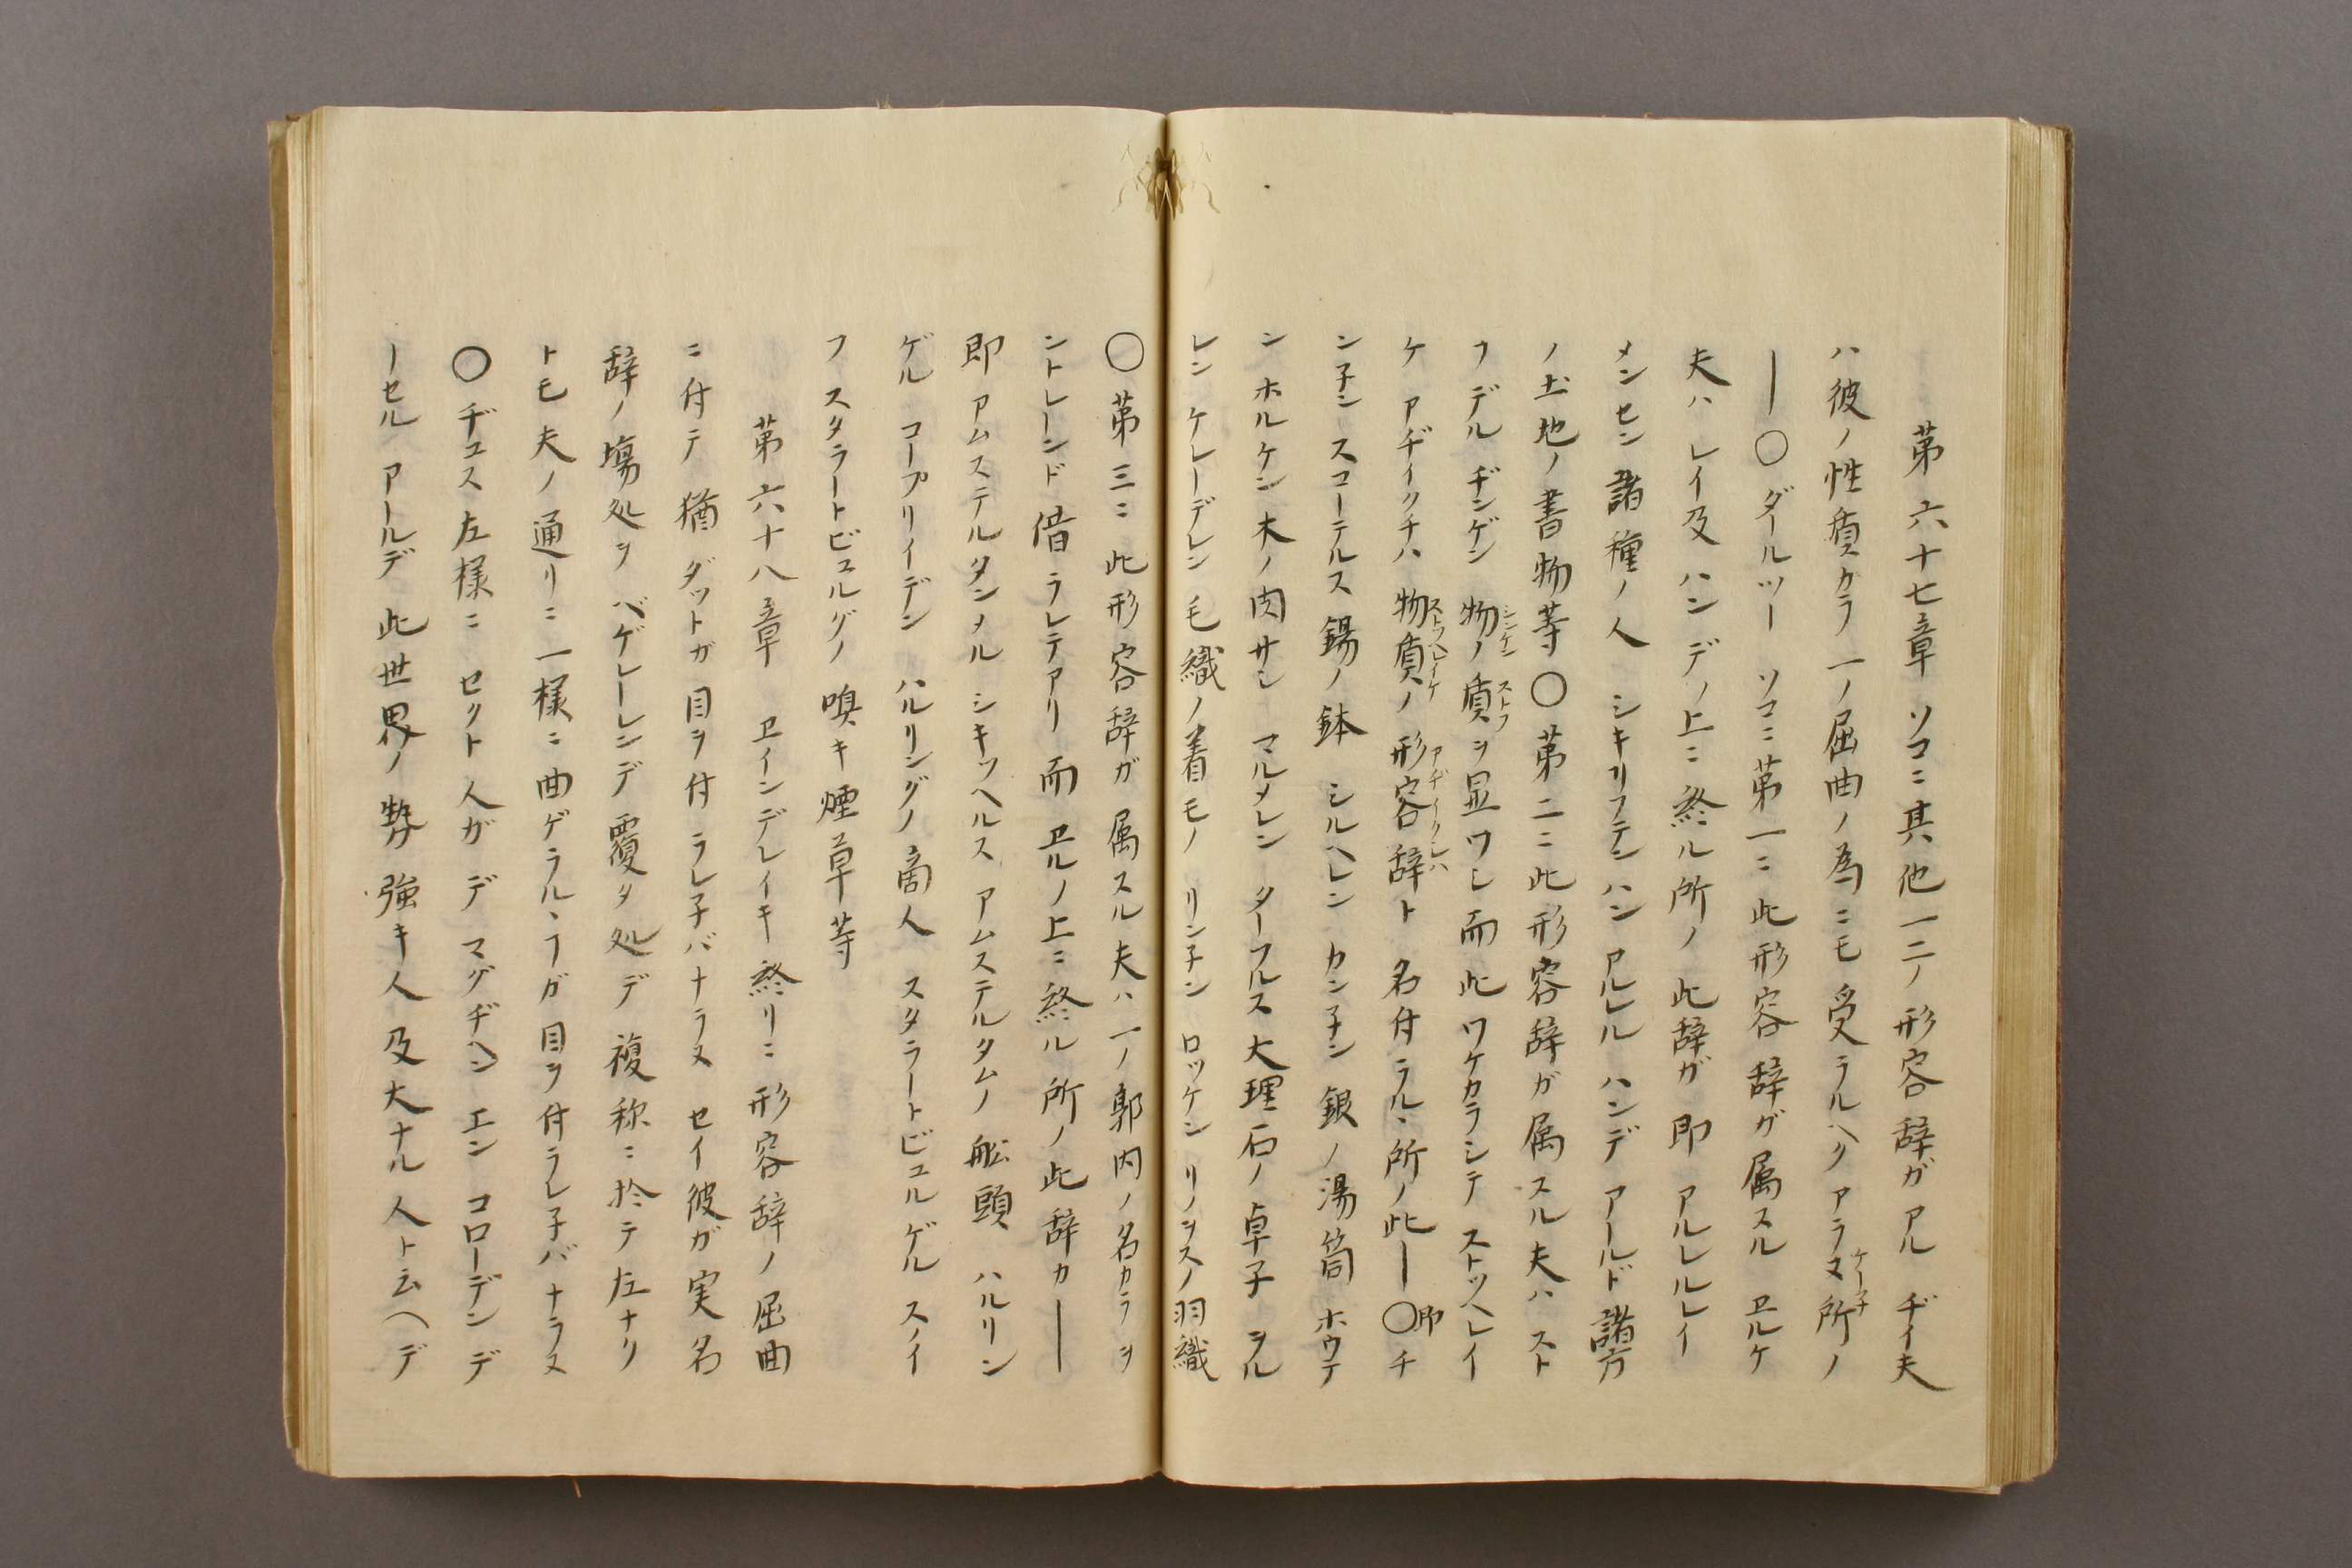 第六十七章 ソコニ其他一二ノ形容辞ガアル ヂイ夫
ハ彼ノ性質カラ 一ノ屈曲ノ為ニモ 受ラルヘクアラヌ所ノ
ケー子
―〇ダールツー ソコニ第一ニ此形容辞ガ属スル ヱルケ
夫ハ レイ及 ハンデノ上ニ終ル所ノ 此辞ガ 即 アルレルレイ
メンセン 諸種ノ人 シキリフテンハン アルレル ハンデ アールド 諸方
ノ土地ノ書物等〇第二ニ此形容辞ガ属スル夫ハ スト
フ デル ヂンゲン 物ノ質ヲ显ワシ而 此 ワケカラシテ ストッヘレイ
シンケン ストフ
ケ アヂイクチハ 物質ノ 形容辞ト 名付ラルヽ所ノ此―〇即チ
ストフヘレイケ アヂイクレハ
ン子ン スコーテルス 錫ノ鉢 シルヘレン カン子ン 銀ノ湯筒 ホウテ
ン ホルケン 木ノ肉サシ マルメレン ターフルス 大理石ノ卓子 ヲル
レン ケレーデレン 毛織ノ着モノ リン子ン ロッケン リノヲスノ羽織
〇第三ニ 此形容辞ガ 属スル夫ハ 一ノ郭内ノ名カラヲ
ントレーンド 借ラレテアリ 而 ヱルノ上ニ終ル所ノ此辞カ―
即 アムステルダンメル シキッヘルス アムステルダムノ 舩頭 ハルリン
ゲル コープリイデン ハルリングノ 商人 スタラートビュルゲル スノイ
フ スタラートビュルグノ 嗅キ煙草等
第六十八章 ヱインデレイキ 終リニ 形容辞ノ屈曲
ニ付テ 猶 ダットガ 目ヲ付ラレ子バナラヌ セイ彼ガ実名
辞ノ場処ヲ ベゲレーレンデ 覆タ処デ 複称ニ於テ左ナリ
トモ夫ノ通リニ一様ニ曲ゲラルヽヿガ目ヲ付ラレ子バナラヌ
〇ヂュス左様ニ セクト人ガ デ マグヂヘン エン コローデン デ
ーセル アールデ 此世界ノ勢強キ人及大ナル人ト云ヘデ